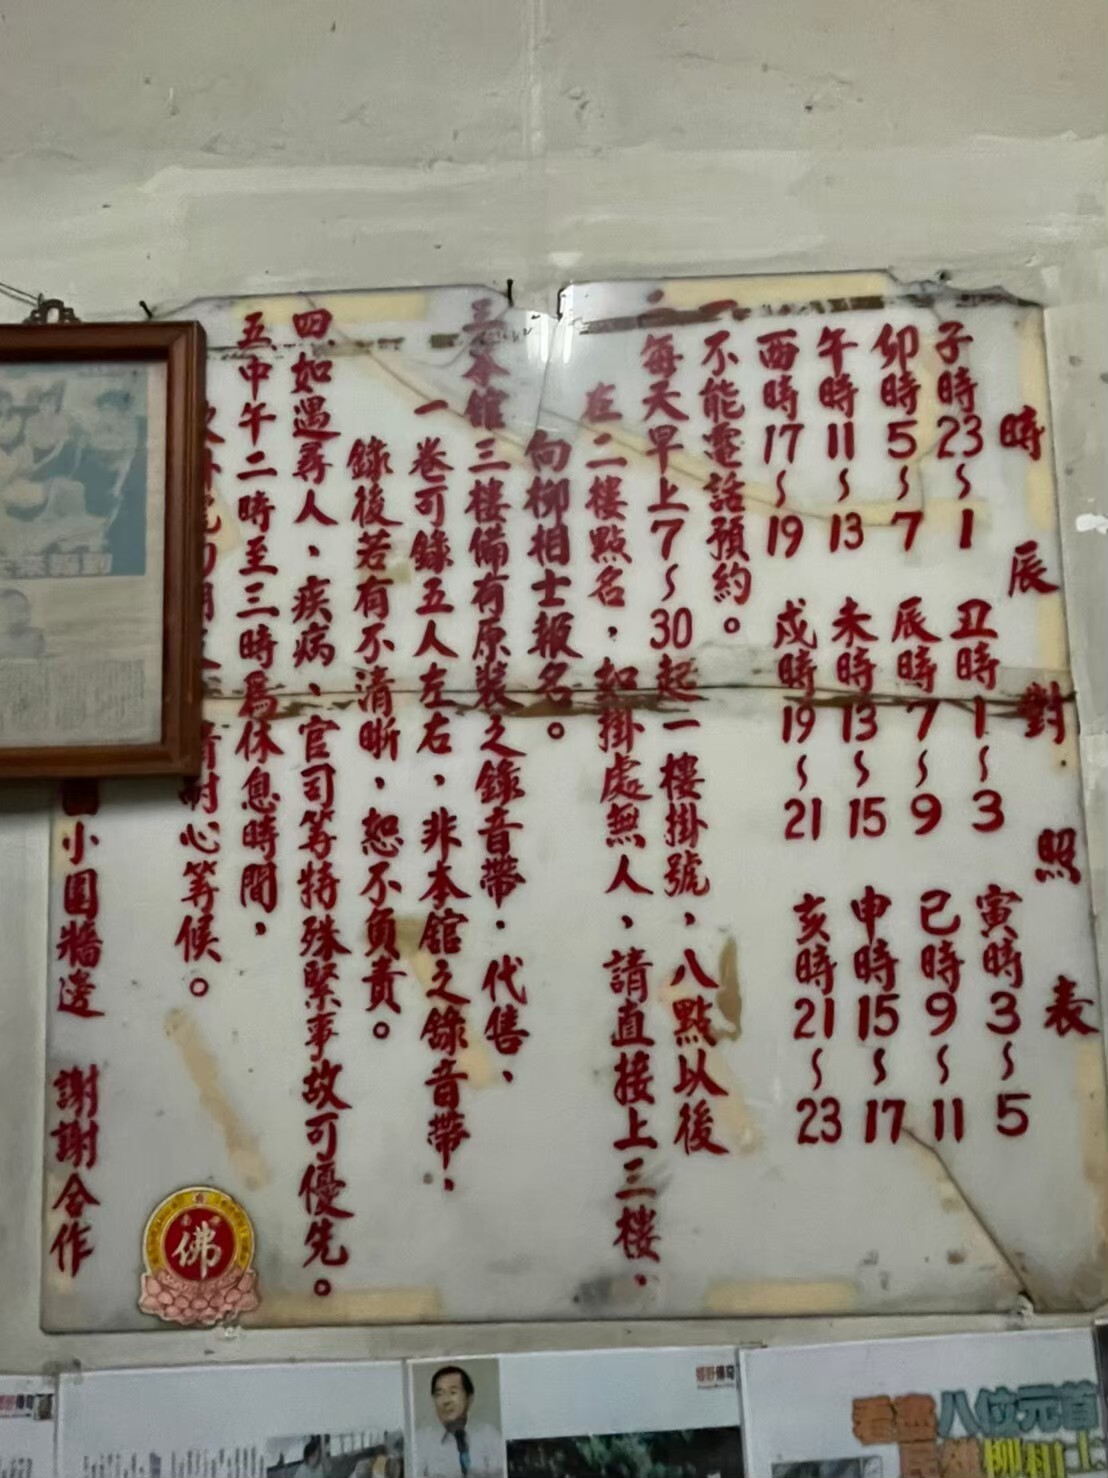 時辰對照表
子時23~1 丑時1~3 寅時3~5
卯時5~7 辰時7~9 巳時9~11
午時11~13 未時13~15 申時15~17
酉時17~19 戍時19~21 亥時21~23
一不能電話預約。
二每天早上7~30起一樓掛號、八點以後
在二樓點名，如掛處無人、請直接上三樓、
向柳相士報名。
三本館三樓備有原裝之錄音帶．代售、
一卷可錄五人左右，非本館之錄音帶、
錄後若有不清晰，恕不負責。
四如遇尋人、疾病、官司等特殊緊事故可優先。
五中午二時至三時為休息時間，
耐心等候。
小圍牆邊 謝謝合作
佛
八位元首
柳相士